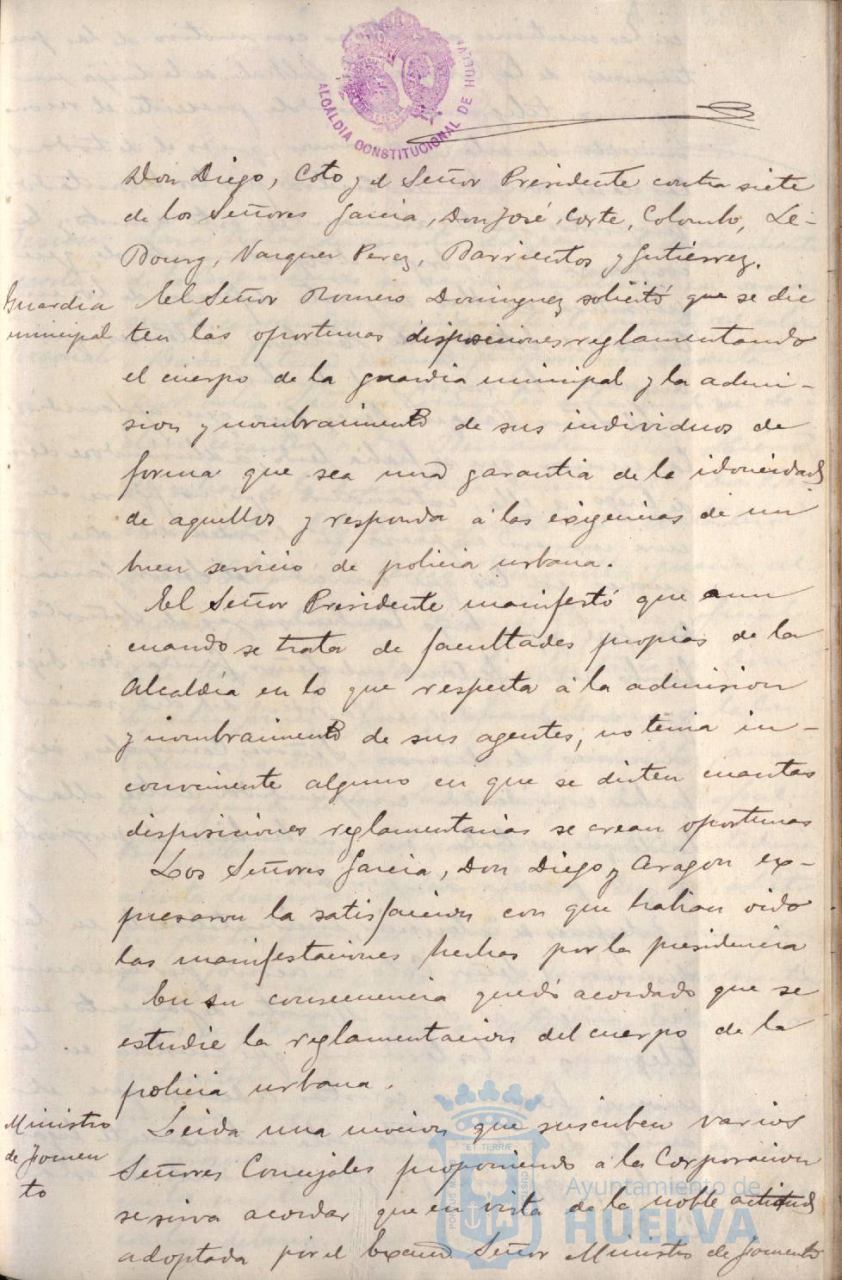 ALCALDIA CONSTITUCIONAL DE HUELVA
Don Diego, Coto y el Señor Presidente contra siete
de los Señores Garcia, Don José, Corte, Colombo, Le-
Bourg, Vazquez Perez, Barrientos y Gutiérrez.
Guardia
municipal
El Señor Romero Dominguez solicitó que se dic
ten las oportunas disposiciones reglamentando
el cuerpo de la guardia municipal y la admi-
sion y nombramiento de sus individuos de
forma que sea una garantia de la idoneidad
de aquellos y responda á las exigencias de un
buen servicio de policia urbana.
El Señor Presidente manifestó que aun
cuando se trata de facultades propias de la
Alcaldía en lo que respecta á la admision
y nombramiento de sus agentes, no tenia in-
conveniente alguno en que se dicten cuantas
disposiciones reglamentarias se crean oportunas
Los Señores Garcia, Don Diego y Aragon ex-
presaron la satisfacion con que habian oido
las manifestaciones hechas por la presidencia
En su consecuencia quedó acordado que se
estudie la reglamentacion del cuerpo de la
policia urbana.
Ministro
de Fomen
to
Leida una mocion que suscriben varios
Señores Concejales proponiendo á la Corporacion
se sirva acordar que en vista de la noble actitud
adoptada por el Excmo Señor Ministro de Fomento
Ayuntamiento de
HUELVA